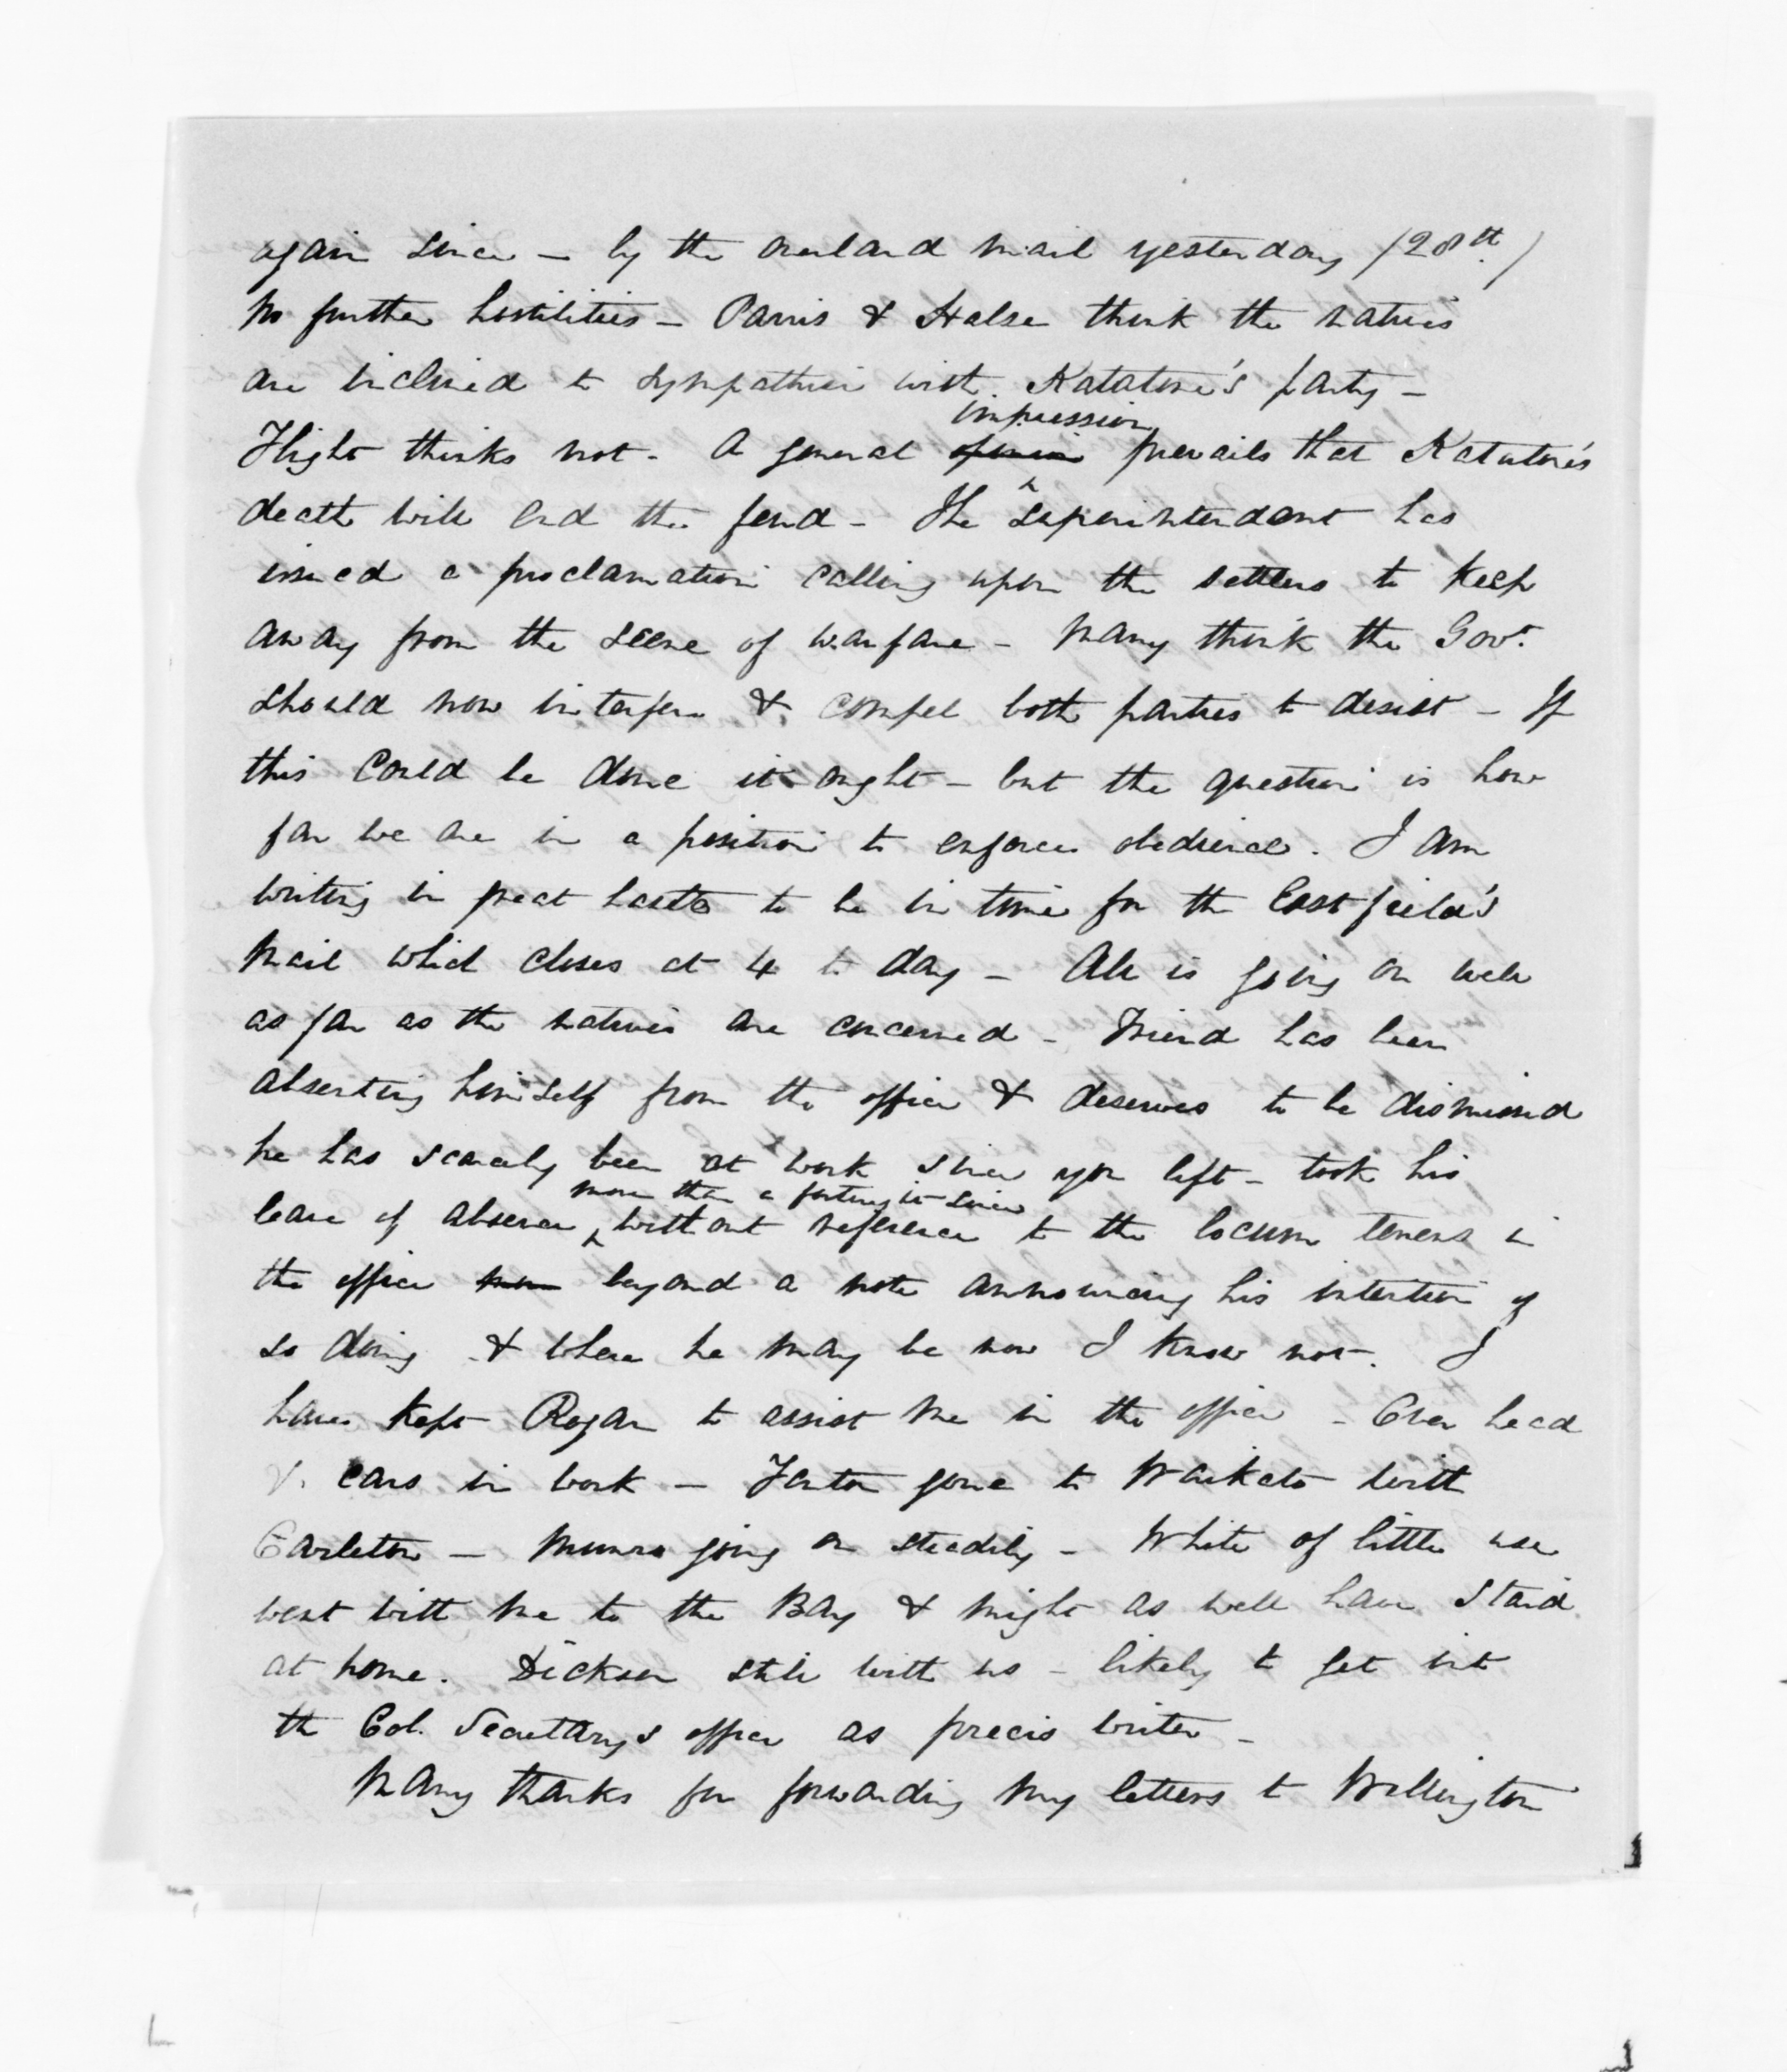 again since — by the overland mail yesterday (28th.)
no further hostilities — Parris & Halse think the natives
are inclined to sympathise with Katatore's party —
impression
Flight thinks not. A general opinion prevails that Katatore's
death will end the feud — The Superintendent has
issued a proclamation calling upon the settlers to keep
away from the scene of warfare — many think the Govt.
should now interfere & compel both parties to desist — If
this could be done it ought — but the question is how
far we are in a position to enforce obedience. I am
writing in great haste to be in time for the Eastfield's
mail which closes at 4 to day — All is going on well
as far as the natives are concerned — Friend has been
absenting himself from the office & deserves to be dismissed
he has scarcely been at work since you left — took his
more than a fortnight since
leave of absence without reference to the locum tenens in
the office beyond a note announcing his intention of
so doing & where he may be now I know not. I
have kept Rogan to assist me in the office — Over head
& ears in work — gone to Waikato with
Carleton — Munro going on steadily — White of little use
went with me to the Bay & might as well have staid
at home. Dickson still with us — likely to get into
the Col. Secretary's office as precis writer —
Many thanks for forwarding my letters to Wellington